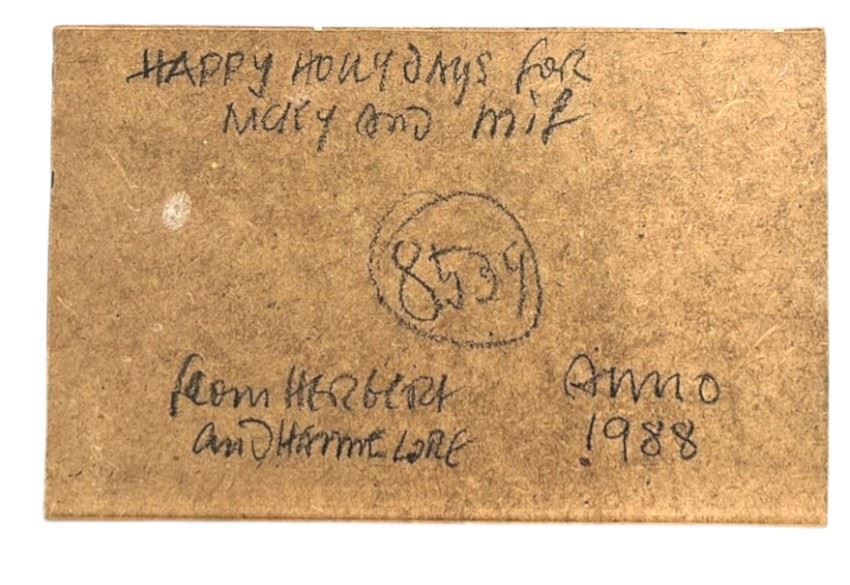 HAPPY HOLLYDAYS FOR
NICKY AND MIF
8534
from HERBERT
and HANNELORE
Anno
1988